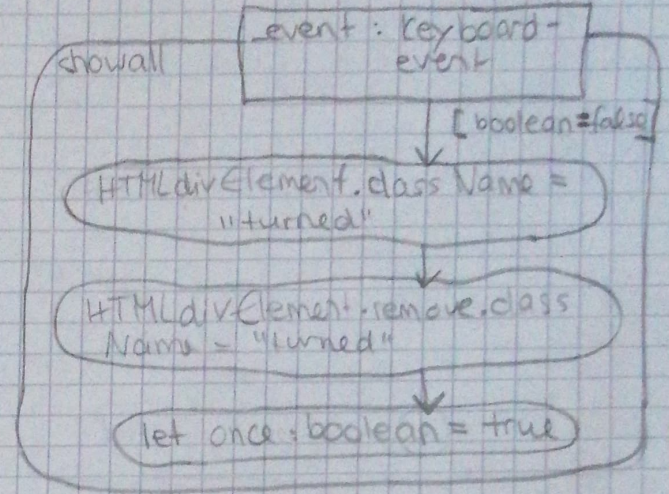 _event : Keyboard-
event
showall
[boolean=false]
HTMLdivElement.className =
"turned"
HTMLdivElement.remove.class
Name = "turned"
let once : boolean = true